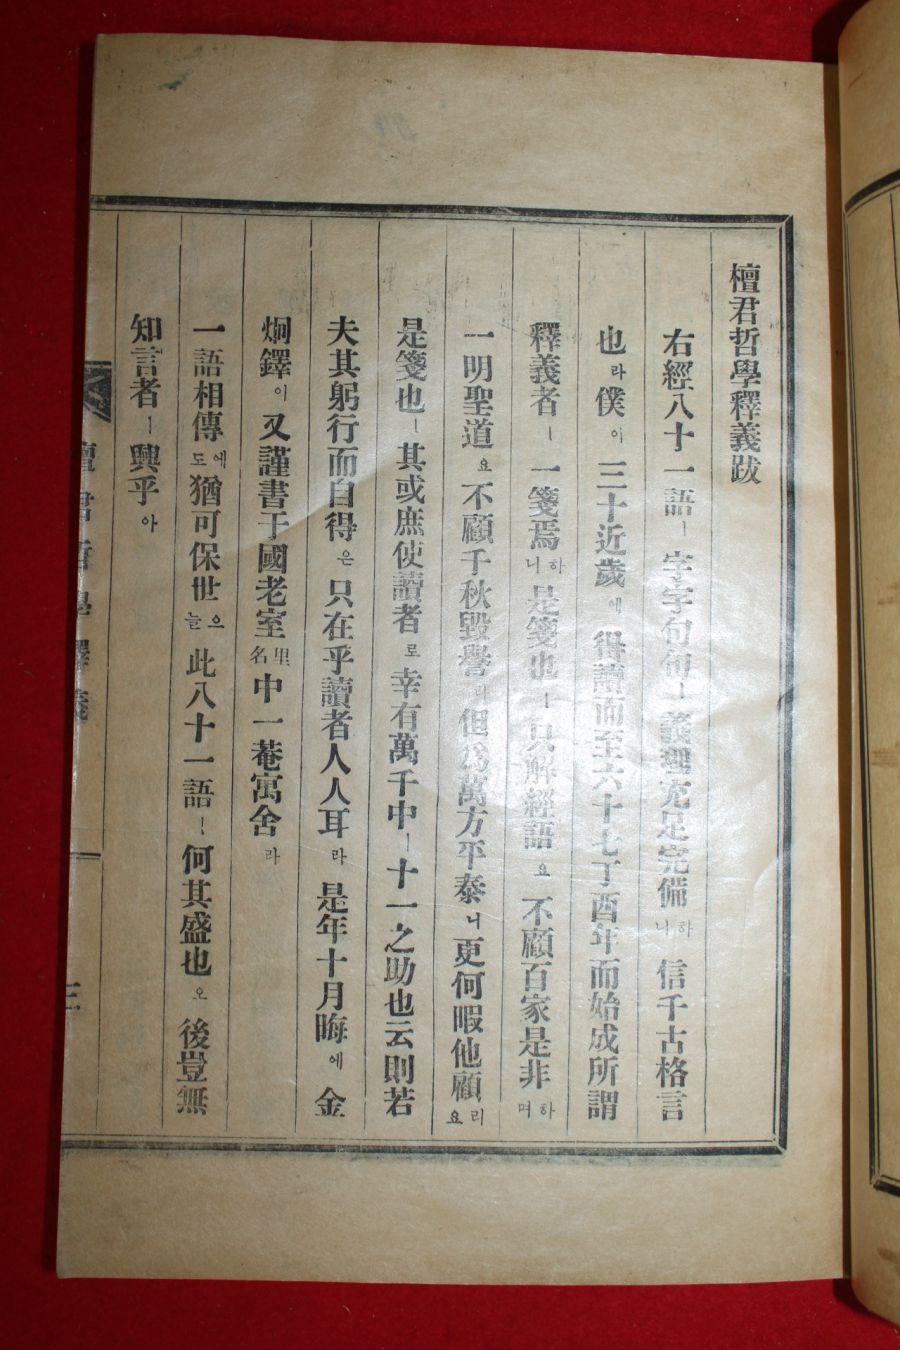 檀君哲學釋義跋
右經八十一語ㅣ 字字句句ㅣ 義理充足完備하니 信千古格言
也라 僕이 三十近歲에 得讀而至六十七丁酉年而始成所謂
釋義者ㅣ 一箋焉하니 是箋也ㅣ 只解經語요 不顧百家是非하며
一明聖道요 不顧千秋毀譽 但爲萬方平泰니 更何暇他顧리요
是箋也ㅣ 其或庶使讀者로 幸有萬千中ㅣ 十一之助也云則若
夫其躬行而自得은 只在乎讀者人人耳라 是年十月晦에 金
炯鐸이 又謹書于國老室里名中一菴寓舍라
一語相傳에도 猶可保世으늘 此八十一語ㅣ 何其盛也오 後豈無
知言者ㅣ 興乎아
檀君哲學釋義
三